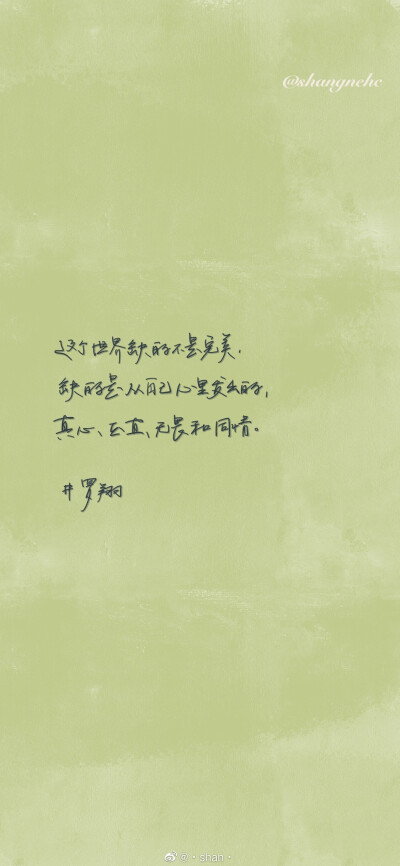 @shangnehc
这个世界缺的不是完美.
缺的是从自己心里发出的,
真心、正直、无畏和同情。
#罗翔
@·shan·